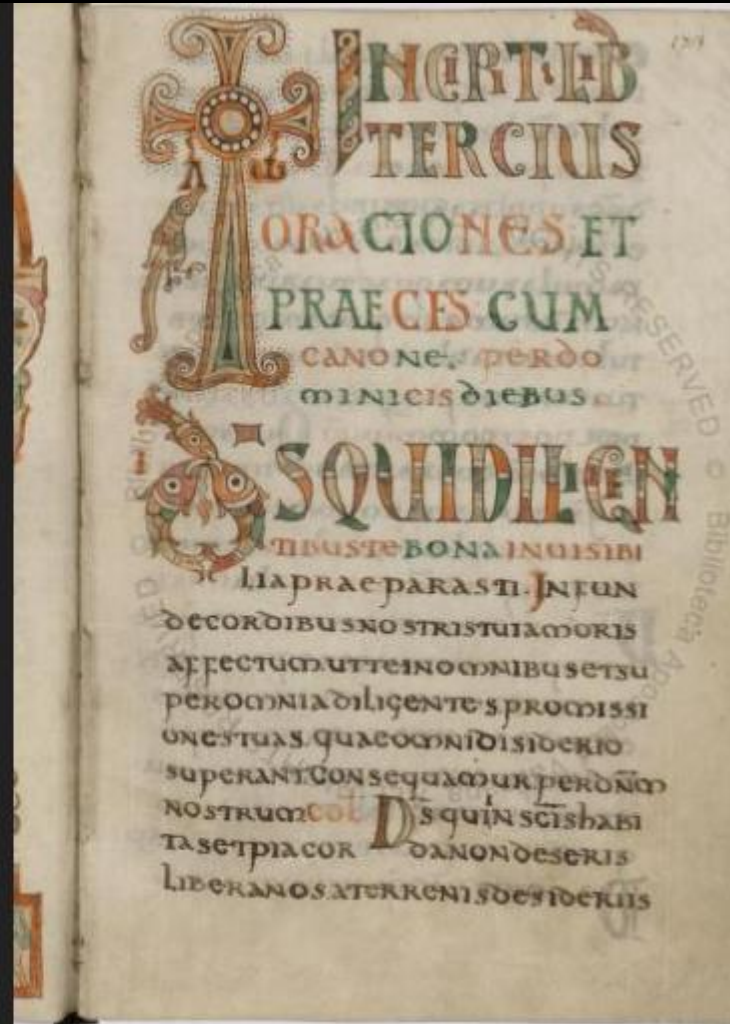 INCIPIT LIB
TERCIUS
ORACIONES ET
PRAECES CUM
CANONE. PERDO
MINICIS DIEBUS
DS QUI DILIGEN
TIBUS TE BONA INUISIBI
LIA PRAEPARASTI. INFUN
DE CORDIBUS NOSTRIS TUI AMORIS
AFFECTUM. UT TE IN OMNIBUS ET SU
PER OMNIA DILIGENTES PROMISSI
ONES TUAS. QUAE OMNI DISIDERIO
SUPERANT CONSEQUAMUR. PER DNM
NOSTRUM COL DS QUI IN SCIS HABI
TAS ET PIA COR DA NON DESERIS
LIBERA NOS A TERRENIS DESIDERIIS